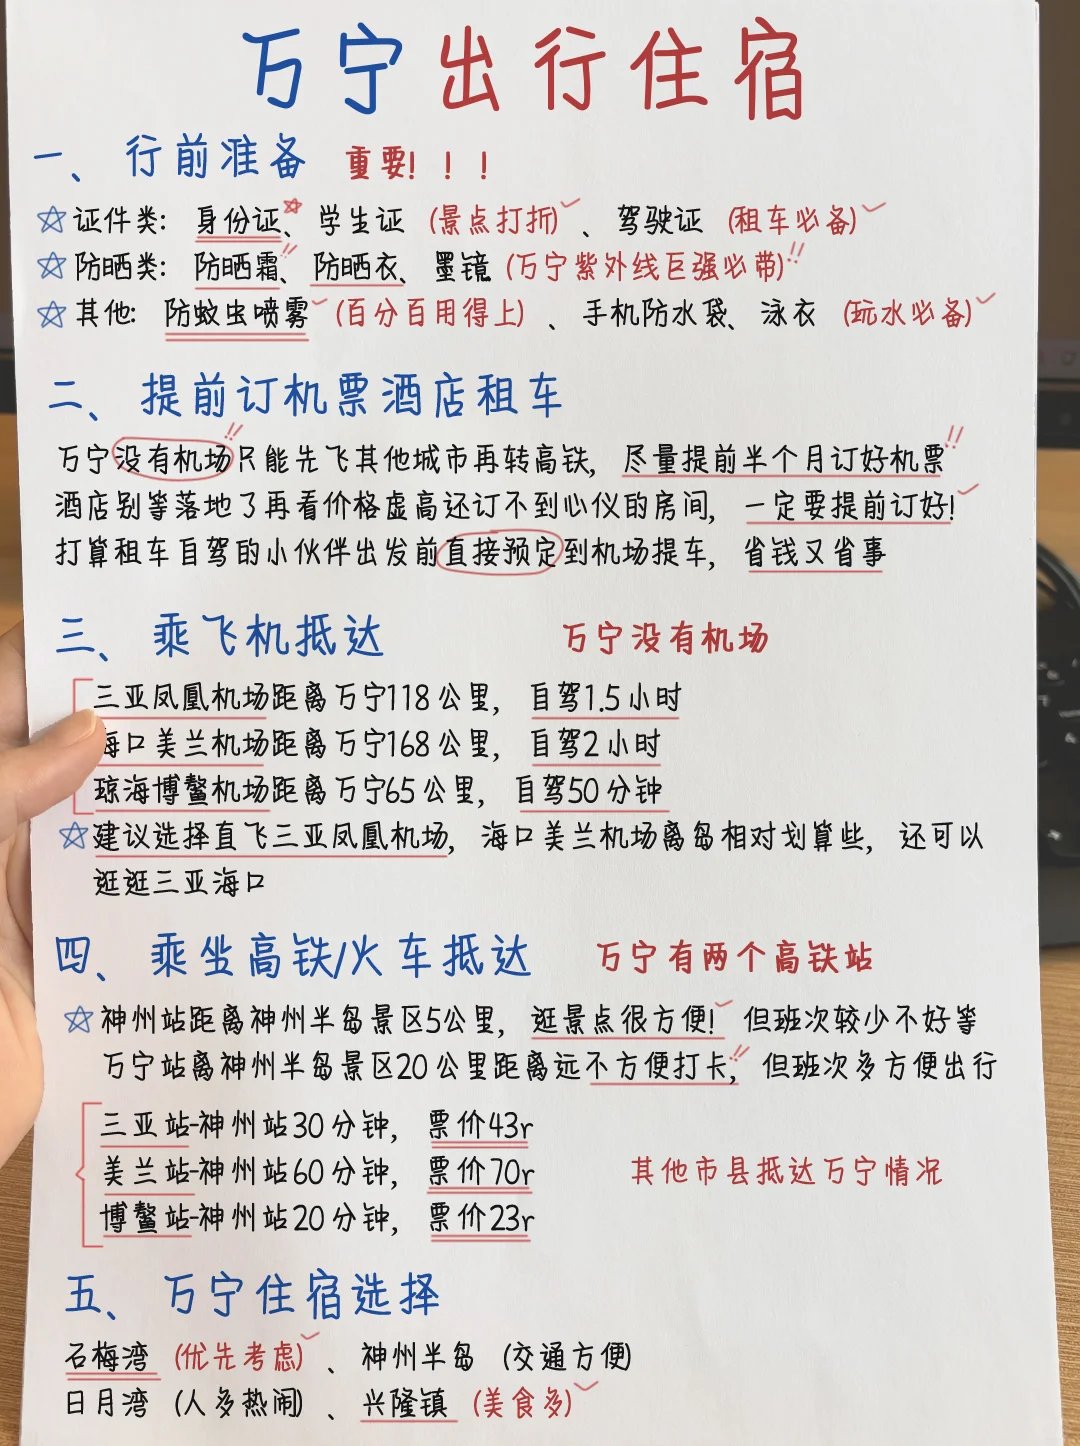 万宁出行住宿
一、行前准备 重要!!!
☆证件类: 身份证、学生证 (景点打折)、驾驶证 (租车必备)
☆防晒类: 防晒霜、防晒衣、墨镜(万宁紫外线巨强必带)!!
☆其他: 防蚊虫喷雾(百分百用得上)、手机防水袋、泳衣 (玩水必备)
二、提前订机票酒店租车
万宁没有机场只能先飞其他城市再转高铁, 尽量提前半个月订好机票
酒店别等落地了再看价格虚高还订不到心仪的房间, 一定要提前订好!
打算租车自驾的小伙伴出发前直接预定到机场提车, 省钱又省事
三、乘飞机抵达 万宁没有机场
三亚凤凰机场距离万宁118公里, 自驾1.5小时
海口美兰机场距离万宁168公里, 自驾2小时
琼海博鳌机场距离万宁65公里, 自驾50分钟
☆建议选择直飞三亚凤凰机场, 海口美兰机场离岛相对划算些, 还可以
逛逛三亚海口
四、乘坐高铁/火车抵达 万宁有两个高铁站
☆神州站距离神州半岛景区5公里, 逛景点很方便! 但班次较少不好等
万宁站离神州半岛景区20公里距离远不方便打卡, 但班次多方便出行
三亚站-神州站30分钟, 票价43r
美兰站-神州站60分钟, 票价70r
其他市县抵达万宁情况
博鳌站-神州站20分钟, 票价23r
五、万宁住宿选择
石梅湾 (优先考虑)、神州半岛 (交通方便)
日月湾 (人多热闹)、兴隆镇 (美食多)